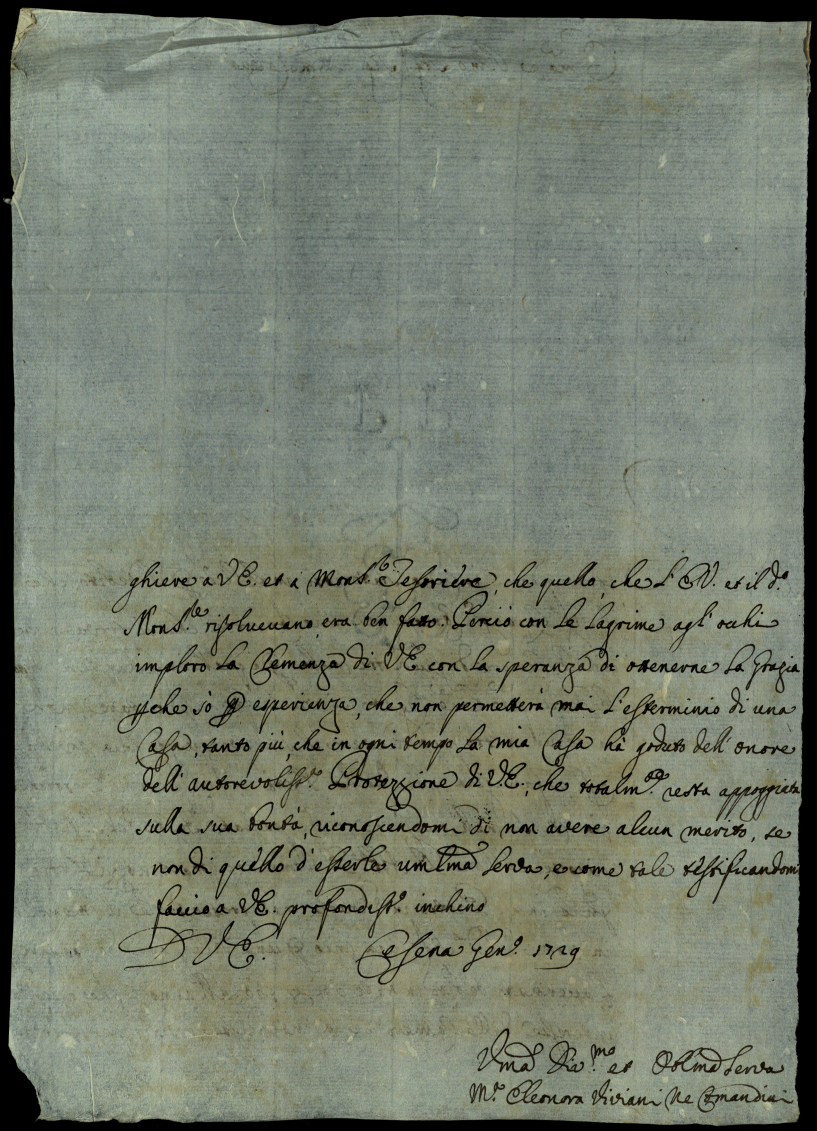 ghiere a V.E. et a Mons.re Tesoriere, che quello, che L'E.V. et il d.o
Mons.re risolvevano era ben fatto. Perciò con Le Lagrime agl'occhi
imploro La Clemenza di V.E. con la speranza di ottenerne La Grazia
che sò esperienza, che non permetterà mai L'esterminio di una
Casa, tanto più, che in ogni tempo La mia Casa hà goduto dell'onore
dell'autorevoliss.a Protezzione di V.E., che totalm.te resta appoggiata
sulla sua bontà, riconoscendomi di non avere alcun merito, se
non di quello d'esserle um.lma Serva, e come tale testificandomi
faccio a V.E. profondiss.o inchino
D V.E. Cesena Gen.o 1729
Vma et Obl.ma Serva
M.a Eleonora Viviani Ne